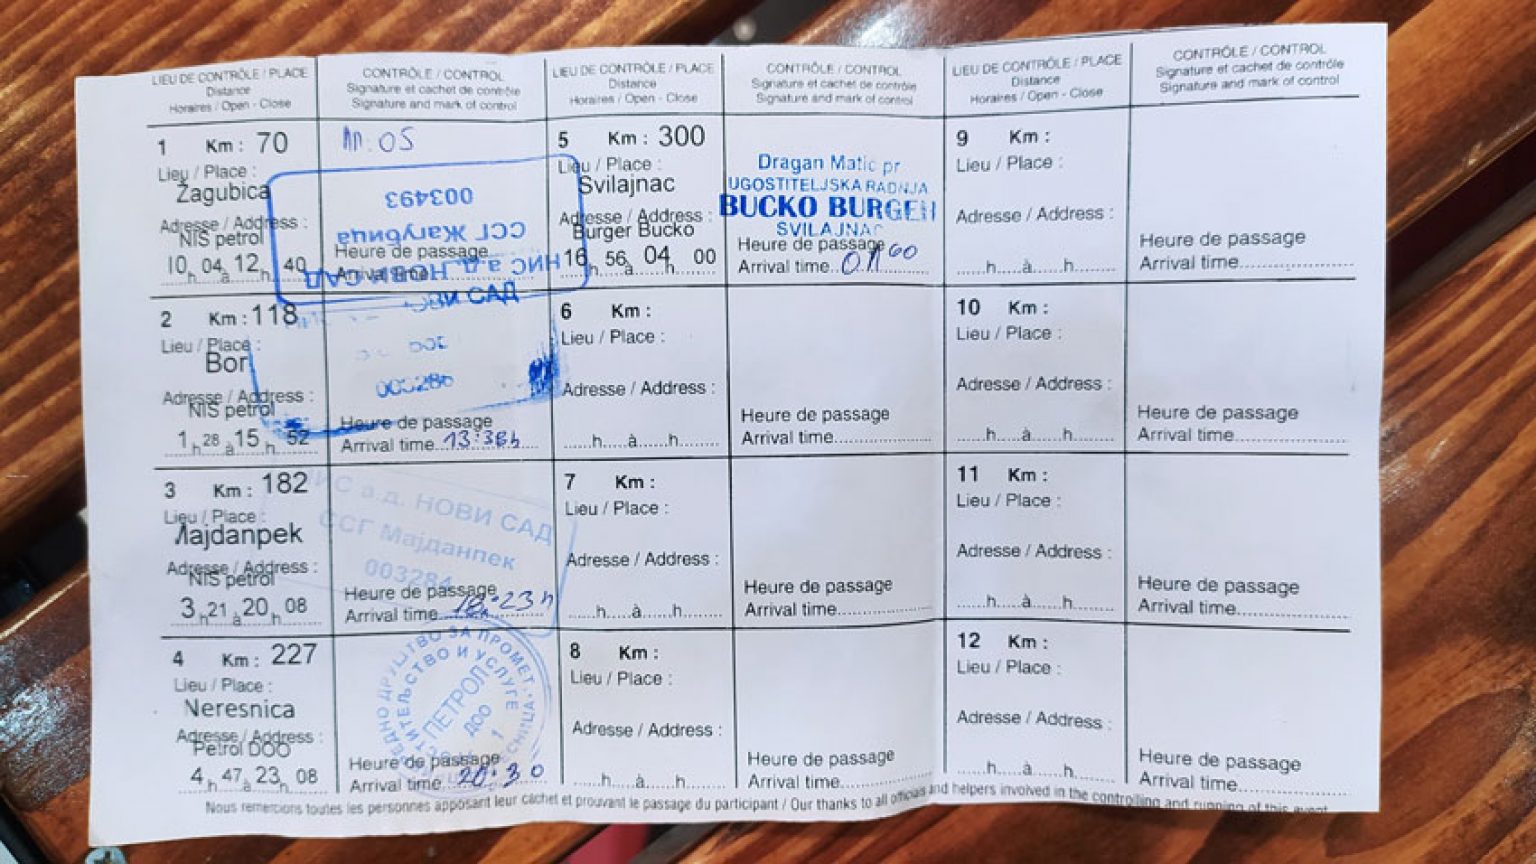 LIEU DE CONTRÔLE / PLACE
Distance
Horaires / Open - Close
CONTRÔLE / CONTROL
Signature et cachet de contrôle
Signature and mark of control
LIEU DE CONTRÔLE / PLACE
Distance
Horaires / Open - Close
CONTRÔLE / CONTROL
Signature et cachet de contrôle
Signature and mark of control
LIEU DE CONTRÔLE / PLACE
Distance
Horaires / Open - Close
CONTRÔLE / CONTROL
Signature et cachet de contrôle
Signature and mark of control
1 Km : 70
Lieu / Place :
Žagubica
Adresse / Address :
NIS petrol
10 h 04 à 12 h 40
:05
003493
ССГ Жагубица
НИС а.д. НОВИ САД
Heure de passage
Arrival time
5 Km : 300
Lieu / Place :
Svilajnac
Adresse / Address :
Burger Bucko
16 h 56 à 04 h 00
Dragan Matic pr
UGOSTITELJSKA RADNJA
BUCKO BURGER
SVILAJNAC
Heure de passage
Arrival time
9 Km :
Lieu / Place :
Adresse / Address :
......h......à......h........
Heure de passage
Arrival time
2 Km : 118
Lieu / Place :
Bor
Adresse / Address :
NIS petrol
1 h 28 à 15 h 52
НОВИ САД
003286
Heure de passage
Arrival time 13:38h
6 Km :
Lieu / Place :
Adresse / Address :
......h......à......h........
Heure de passage
Arrival time
10 Km :
Lieu / Place :
Adresse / Address :
......h......à......h........
Heure de passage
Arrival time
3 Km : 182
Lieu / Place :
Majdanpek
Adresse / Address :
NIS petrol
3 h 21 à 20 h 08
НИС а.д. НОВИ САД
ССГ Мајданпек
003284
Heure de passage
Arrival time 18:23h
7 Km :
Lieu / Place :
Adresse / Address :
......h......à......h........
Heure de passage
Arrival time
11 Km :
Lieu / Place :
Adresse / Address :
......h......à......h........
Heure de passage
Arrival time
4 Km : 227
Lieu / Place :
Neresnica
Adresse / Address :
Petrol DOO
4 h 47 à 23 h 08
ДРУШТВО ЗА ПРОМЕТ,
И УСЛУГЕ
ПЕТРОЛ
ДОО
1
Heure de passage
Arrival time 20:30
8 Km :
Lieu / Place :
Adresse / Address :
......h......à......h........
Heure de passage
Arrival time
12 Km :
Lieu / Place :
Adresse / Address :
......h......à......h........
Heure de passage
Arrival time
Nous remercions toutes les personnes apposant leur cachet et prouvant le passage du participant / Our thanks to all officials and helpers involved in the controlling and running of this event